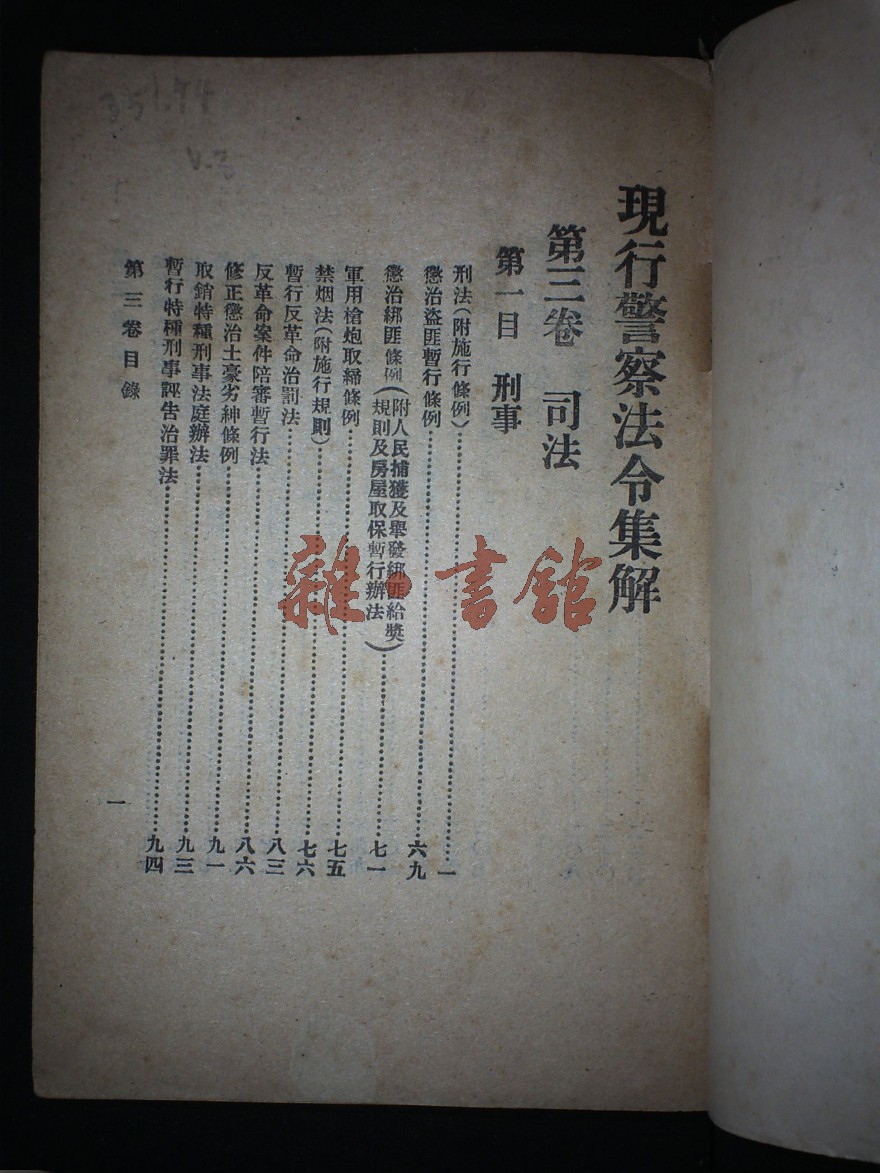 現行警察法令集解
第三卷　司法
第一目　刑事
刑法(附施行條例)…………一
懲治盜匪暫行條例…………六九
懲治綁匪條例(附人民捕獲及舉發綁匪給獎規則及房屋取保暫行辦法)…………七一
軍用槍炮取締條例…………七五
禁烟法(附施行規則)…………七六
暫行反革命治罰法…………八三
反革命案件陪審暫行法…………八六
修正懲治土豪劣紳條例…………九一
取銷特種刑事法庭辦法…………九三
暫行特種刑事誣告治罪法…………九四
第三卷目錄
一
351.44
V.3
雜·書館